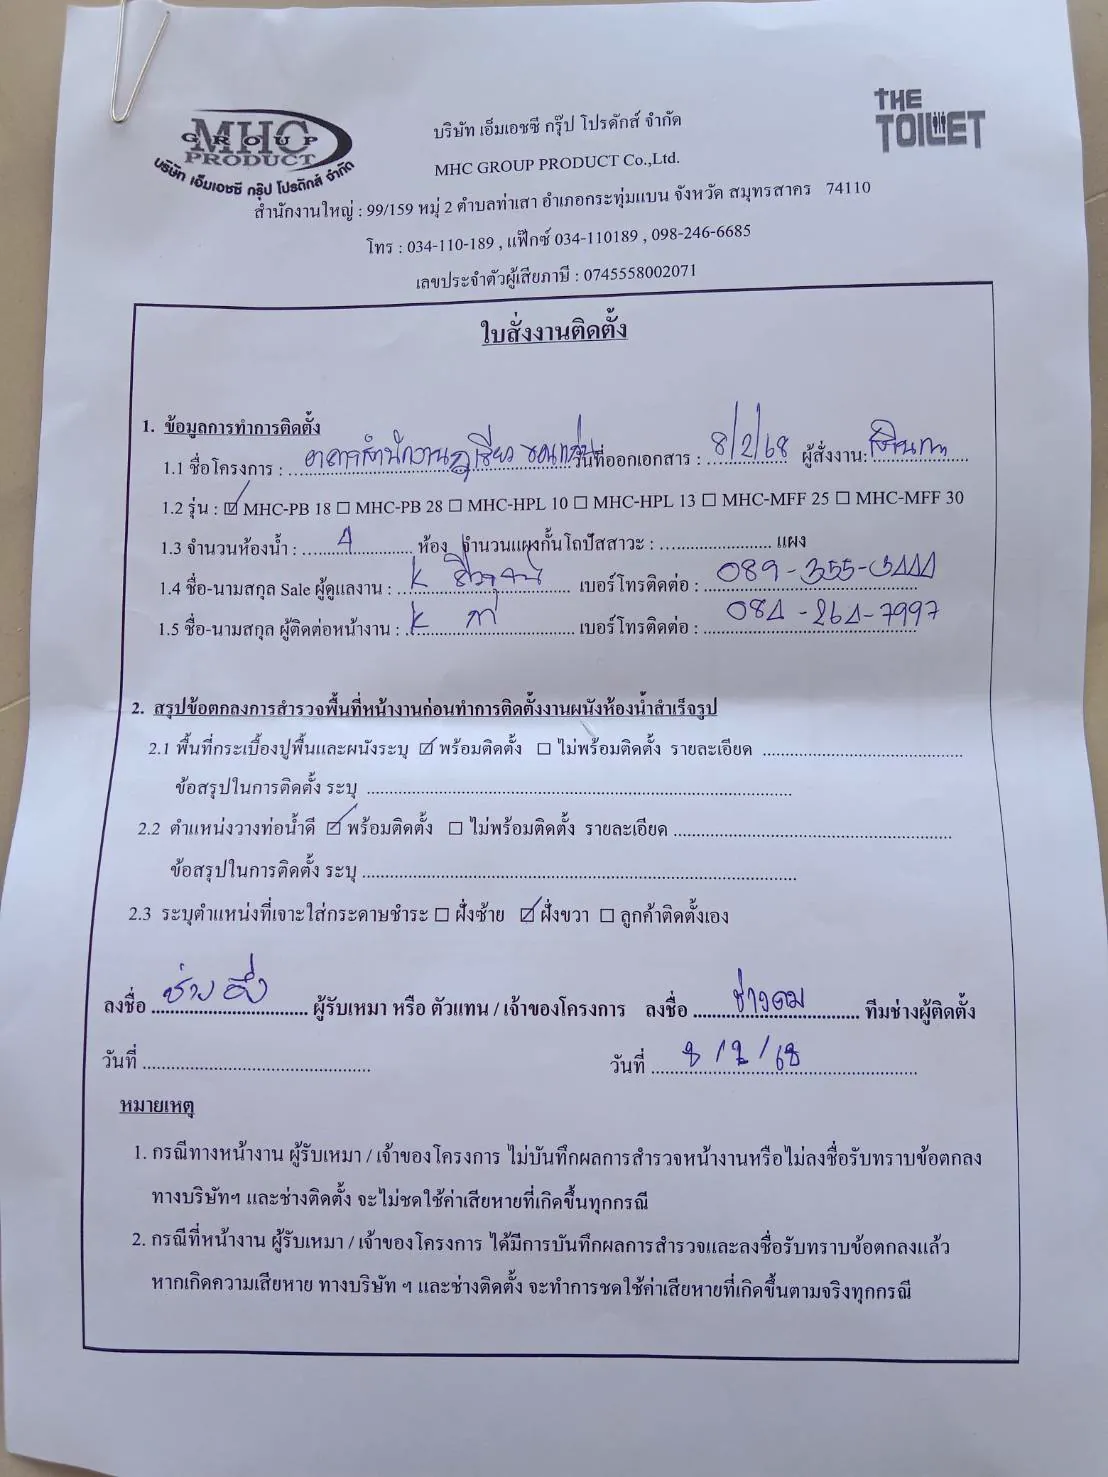 MHC
GROUP
PRODUCT
บริษัท เอ็มเอชซี กรุ๊ป โปรดักส์ จำกัด
THE
TOILET
บริษัท เอ็มเอชซี กรุ๊ป โปรดักส์ จำกัด
MHC GROUP PRODUCT Co.,Ltd.
สำนักงานใหญ่ : 99/159 หมุ่ 2 ตำบลท่าเสา อำเภอกระทุ่มแบน จังหวัด สมุทรสาคร 74110
โทร : 034-110-189 , แฟ๊กซ์ 034-110189 , 098-246-6685
เลขประจำตัวผู้เสียภาษี : 0745558002071
ใบสั่งงานติดตั้ง
1. ข้อมูลการทำการติดตั้ง
1.1 ชื่อโครงการ : อาคารสำนักงาน ขอนแก่น วันที่ออกเอกสาร : 8/2/68 ผู้สั่งงาน:
1.2 รุ่น : ☑ MHC-PB 18 ☐ MHC-PB 28 ☐ MHC-HPL 10 ☐ MHC-HPL 13 ☐ MHC-MFF 25 ☐ MHC-MFF 30
1.3 จำนวนห้องน้ำ : 4 ห้อง จำนวนแผงกั้นโถปัสสาวะ : ........................ แผง
1.4 ชื่อ-นามสกุล Sale ผู้ดูแลงาน : K เบอร์โทรติดต่อ : 089-355-3444
1.5 ชื่อ-นามสกุล ผู้ติดต่อหน้างาน : K เบอร์โทรติดต่อ : 084-264-7997
2. สรุปข้อตกลงการสำรวจพื้นที่หน้างานก่อนทำการติดตั้งงานผนังห้องน้ำสำเร็จรูป
2.1 พื้นที่กระเบื้องปูพื้นและผนังระบุ ☑ พร้อมติดตั้ง ☐ ไม่พร้อมติดตั้ง รายละเอียด ........................
ข้อสรุปในการติดตั้ง ระบุ ........................
2.2 ตำแหน่งวางท่อน้ำดี ☑ พร้อมติดตั้ง ☐ ไม่พร้อมติดตั้ง รายละเอียด ........................
ข้อสรุปในการติดตั้ง ระบุ ........................
2.3 ระบุตำแหน่งที่เจาะใส่กระดาษชำระ ☐ ฝั่งซ้าย ☑ ฝั่งขวา ☐ ลูกค้าติดตั้งเอง
ลงชื่อ ช่าง ผู้รับเหมา หรือ ตัวแทน / เจ้าของโครงการ ลงชื่อ ช่างดม ทีมช่างผู้ติดตั้ง
วันที่ ........................ วันที่ 8/2/68
หมายเหตุ
1. กรณีทางหน้างาน ผู้รับเหมา / เจ้าของโครงการ ไม่บันทึกผลการสำรวจหน้างานหรือไม่ลงชื่อรับทราบข้อตกลง
ทางบริษัทฯ และช่างติดตั้ง จะไม่ชดใช้ค่าเสียหายที่เกิดขึ้นทุกกรณี
2. กรณีที่หน้างาน ผู้รับเหมา / เจ้าของโครงการ ได้มีการบันทึกผลการสำรวจและลงชื่อรับทราบข้อตกลงแล้ว
หากเกิดความเสียหาย ทางบริษัท ฯ และช่างติดตั้ง จะทำการชดใช้ค่าเสียหายที่เกิดขึ้นตามจริงทุกกรณี